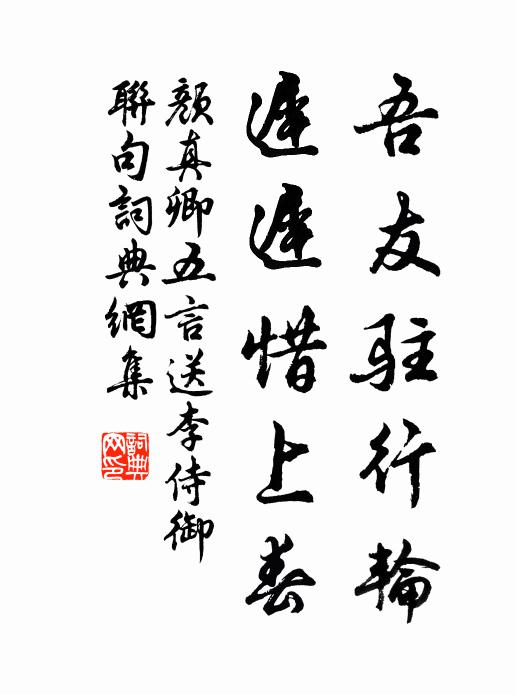 吾友駐行輪
遲遲惜上春
顏真卿五言送李侍御
聯句詞典網集
詞典网印